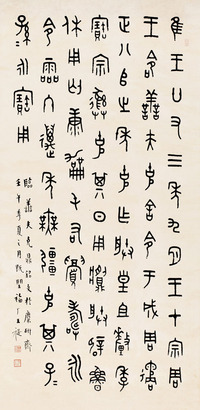 隹王廿又三年九月王才宗周
王令善夫克舍令于成周遹
正八𠂤之年克乍朕皇且釐季
寶宗彝克其日用𩰫朕辟魯
休用匄康勵屯右眉壽永
令霝冬萬年無疆克其子=
孫=永寶用
臨善夫克鼎銘文於
壬午年夏月